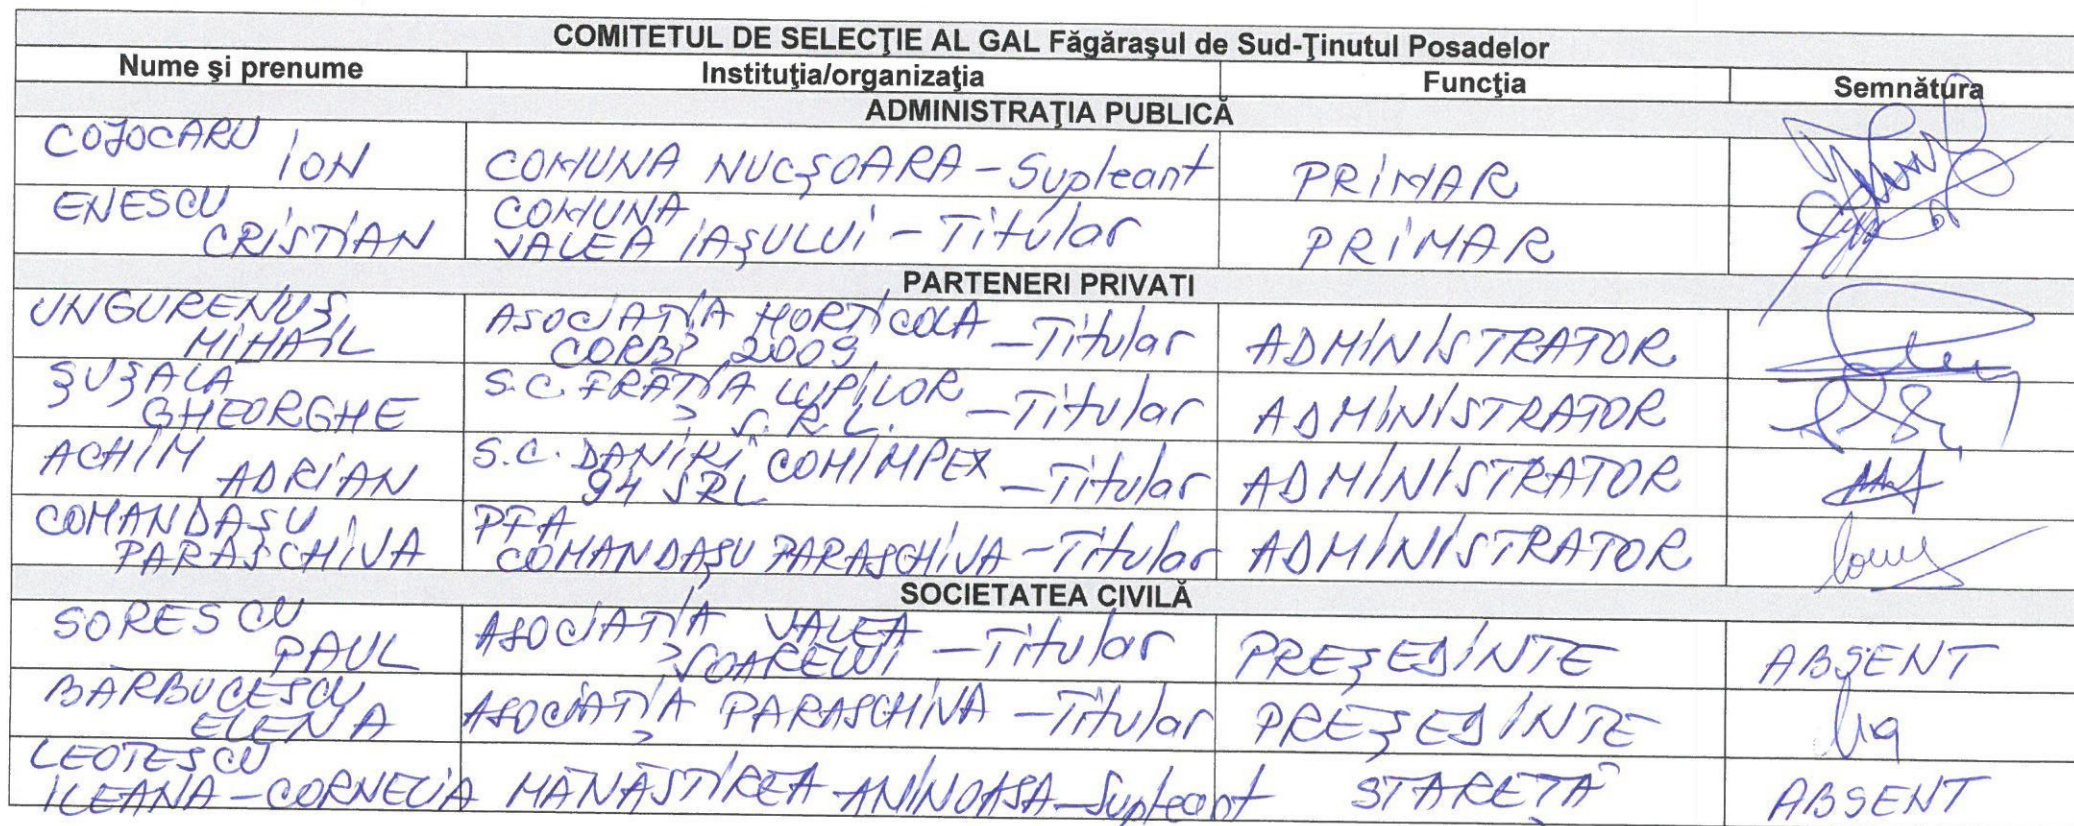 COMITETUL DE SELECŢIE AL GAL Făgăraşul de Sud-Ţinutul Posadelor
Nume şi prenume Instituţia/organizaţia Funcţia Semnătura
ADMINISTRAŢIA PUBLICĂ
COJOCARU ION COMUNA NUCŞOARA - Supleant PRIMAR
ENESCU CRISTIAN COMUNA VALEA IAŞULUI - Titular PRIMAR
PARTENERI PRIVATI
UNGURENUŞ MIHAIL ASOCIAŢIA HORTICOLA CORBI 2009 - Titular ADMINISTRATOR
ŞUŞALA GHEORGHE S.C. FRAŢIA LUPILOR S.R.L. - Titular ADMINISTRATOR
ACHIM ADRIAN S.C. DANIRI COMIMPEX 94 SRL - Titular ADMINISTRATOR
COMANDAŞU PARASCHIVA PFA COMANDAŞU PARASCHIVA - Titular ADMINISTRATOR
SOCIETATEA CIVILĂ
SORESCU PAUL ASOCIAŢIA VALEA SOARELUI - Titular PREŞEDINTE ABSENT
BĂRBUCESCU ELENA ASOCIAŢIA PARASCHIVA - Titular PREŞEDINTE
LEOTESCU ILEANA-CORNELIA MĂNĂSTIREA ANINOASA - Supleant STAREŢĂ ABSENT